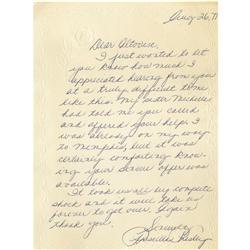 Aug 26, 77
Dear Altovise,
I just wanted to let
you know how much I
appreciated hearing from you
at a truly difficult time
like this. My sister Michelle
had told me you called
and offered your help. I
was already on my way
to Memphis but it was
certainly comforting know-
ing your sincere offer was
available.
It took us all by complete
shock and it will take us
forever to get over. Again
thank you.
Sincerely
Priscilla Presley